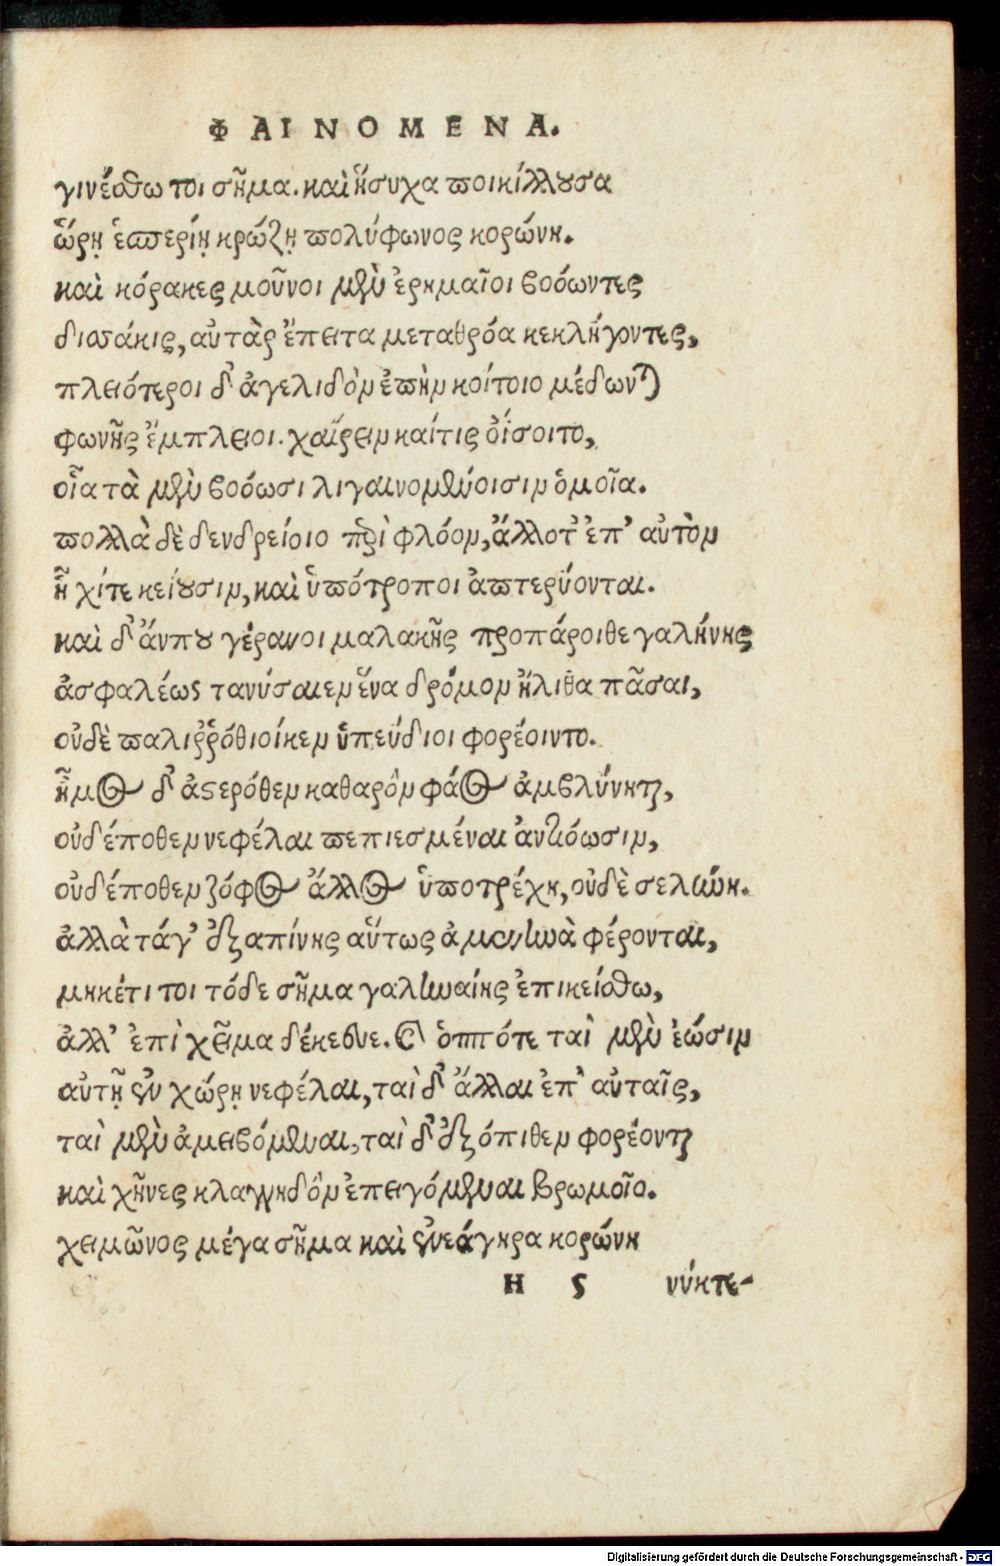 ΦΑΙΝΟΜΕΝΑ.
γινέσθω τοι σῆμα. καὶ ἥσυχα ποικίλλουσα
ὥρῃ ἑσπερίῃ κρώζῃ πολύφωνος κορώνη.
καὶ κόρακες μοῦνοι μὲν ἐρημαῖοι βοόωντες
δισσάκις, αὐτὰρ ἔπειτα μεταθρόα κεκλήγοντες,
πλειότεροι δ' ἀγεληδὸν ἐπὴν κοίτοιο μέδωνται
φωνῆς ἔμπλειοι. χαίρειν καί τις ὀΐσοιτο,
οἷα τὰ μὲν βοόωσι λιγαινομένοισιν ὁμοῖα.
πολλὰ δὲ δενδρείοιο περὶ φλόον, ἄλλοτ' ἐπ' αὐτὸν
ἧχί τε κείουσιν, καὶ ὑπότροποι ἀπτερύονται.
καὶ δ' ἄν που γέρανοι μαλακῆς προπάροιθε γαλήνης
ἀσφαλέως τανύσαιεν ἕνα δρόμον ἤλιθα πᾶσαι,
οὐδὲ παλιῤῥόθιοί κεν ὑπεύδιοι φορέοιντο.
ἦμος δ' ἀστερόθεν καθαρὸν φάος ἀμβλύνηται,
οὐδέ ποθεν νεφέλαι πεπιεσμέναι ἀντιόωσιν,
οὐδέ ποθεν ζόφος ἄλλος ὑποτρέχη, οὐδὲ σελήνη.
ἀλλὰ τά γ' ἐξαπίνης αὕτως ἀμενηνὰ φέρονται,
μηκέτι τοι τόδε σῆμα γαληναίης ἐπικείσθω,
ἀλλ' ἐπὶ χεῖμα δέκευε. καὶ ὁππότε ταὶ μὲν ἐώσιν
αὐτῇ ἐν χώρῃ νεφέλαι, ταὶ δ' ἄλλαι ἐπ' αὐταῖς,
ταὶ μὲν ἀμειβόμεναι, ταὶ δ' ἐξόπιθεν φορέονται
καὶ χῆνες κλαγγηδὸν ἐπειγόμεναι βρωμοῖο.
χειμῶνος μέγα σῆμα καὶ ἐννεάγηρα κορώνη
Η ς νύκτε-
Digitalisierung gefördert durch die Deutsche Forschungsgemeinschaft - DFG